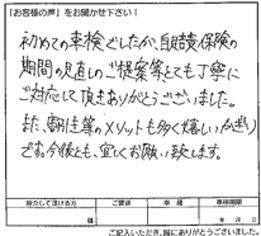 「お客様の声」をお聞かせ下さい！
初めての車検でしたが、自賠責保険の
期間の見直しのご提案等、とても丁寧に
ご対応して頂きありがとうございました。
また、割引等のメリットも多く嬉しいかぎり
です。今後とも、宜しくお願い致します。
紹介して頂ける方 ご関係 車種 車検期限
様 年 月 日
ご記入いただき、誠にありがとうございました。